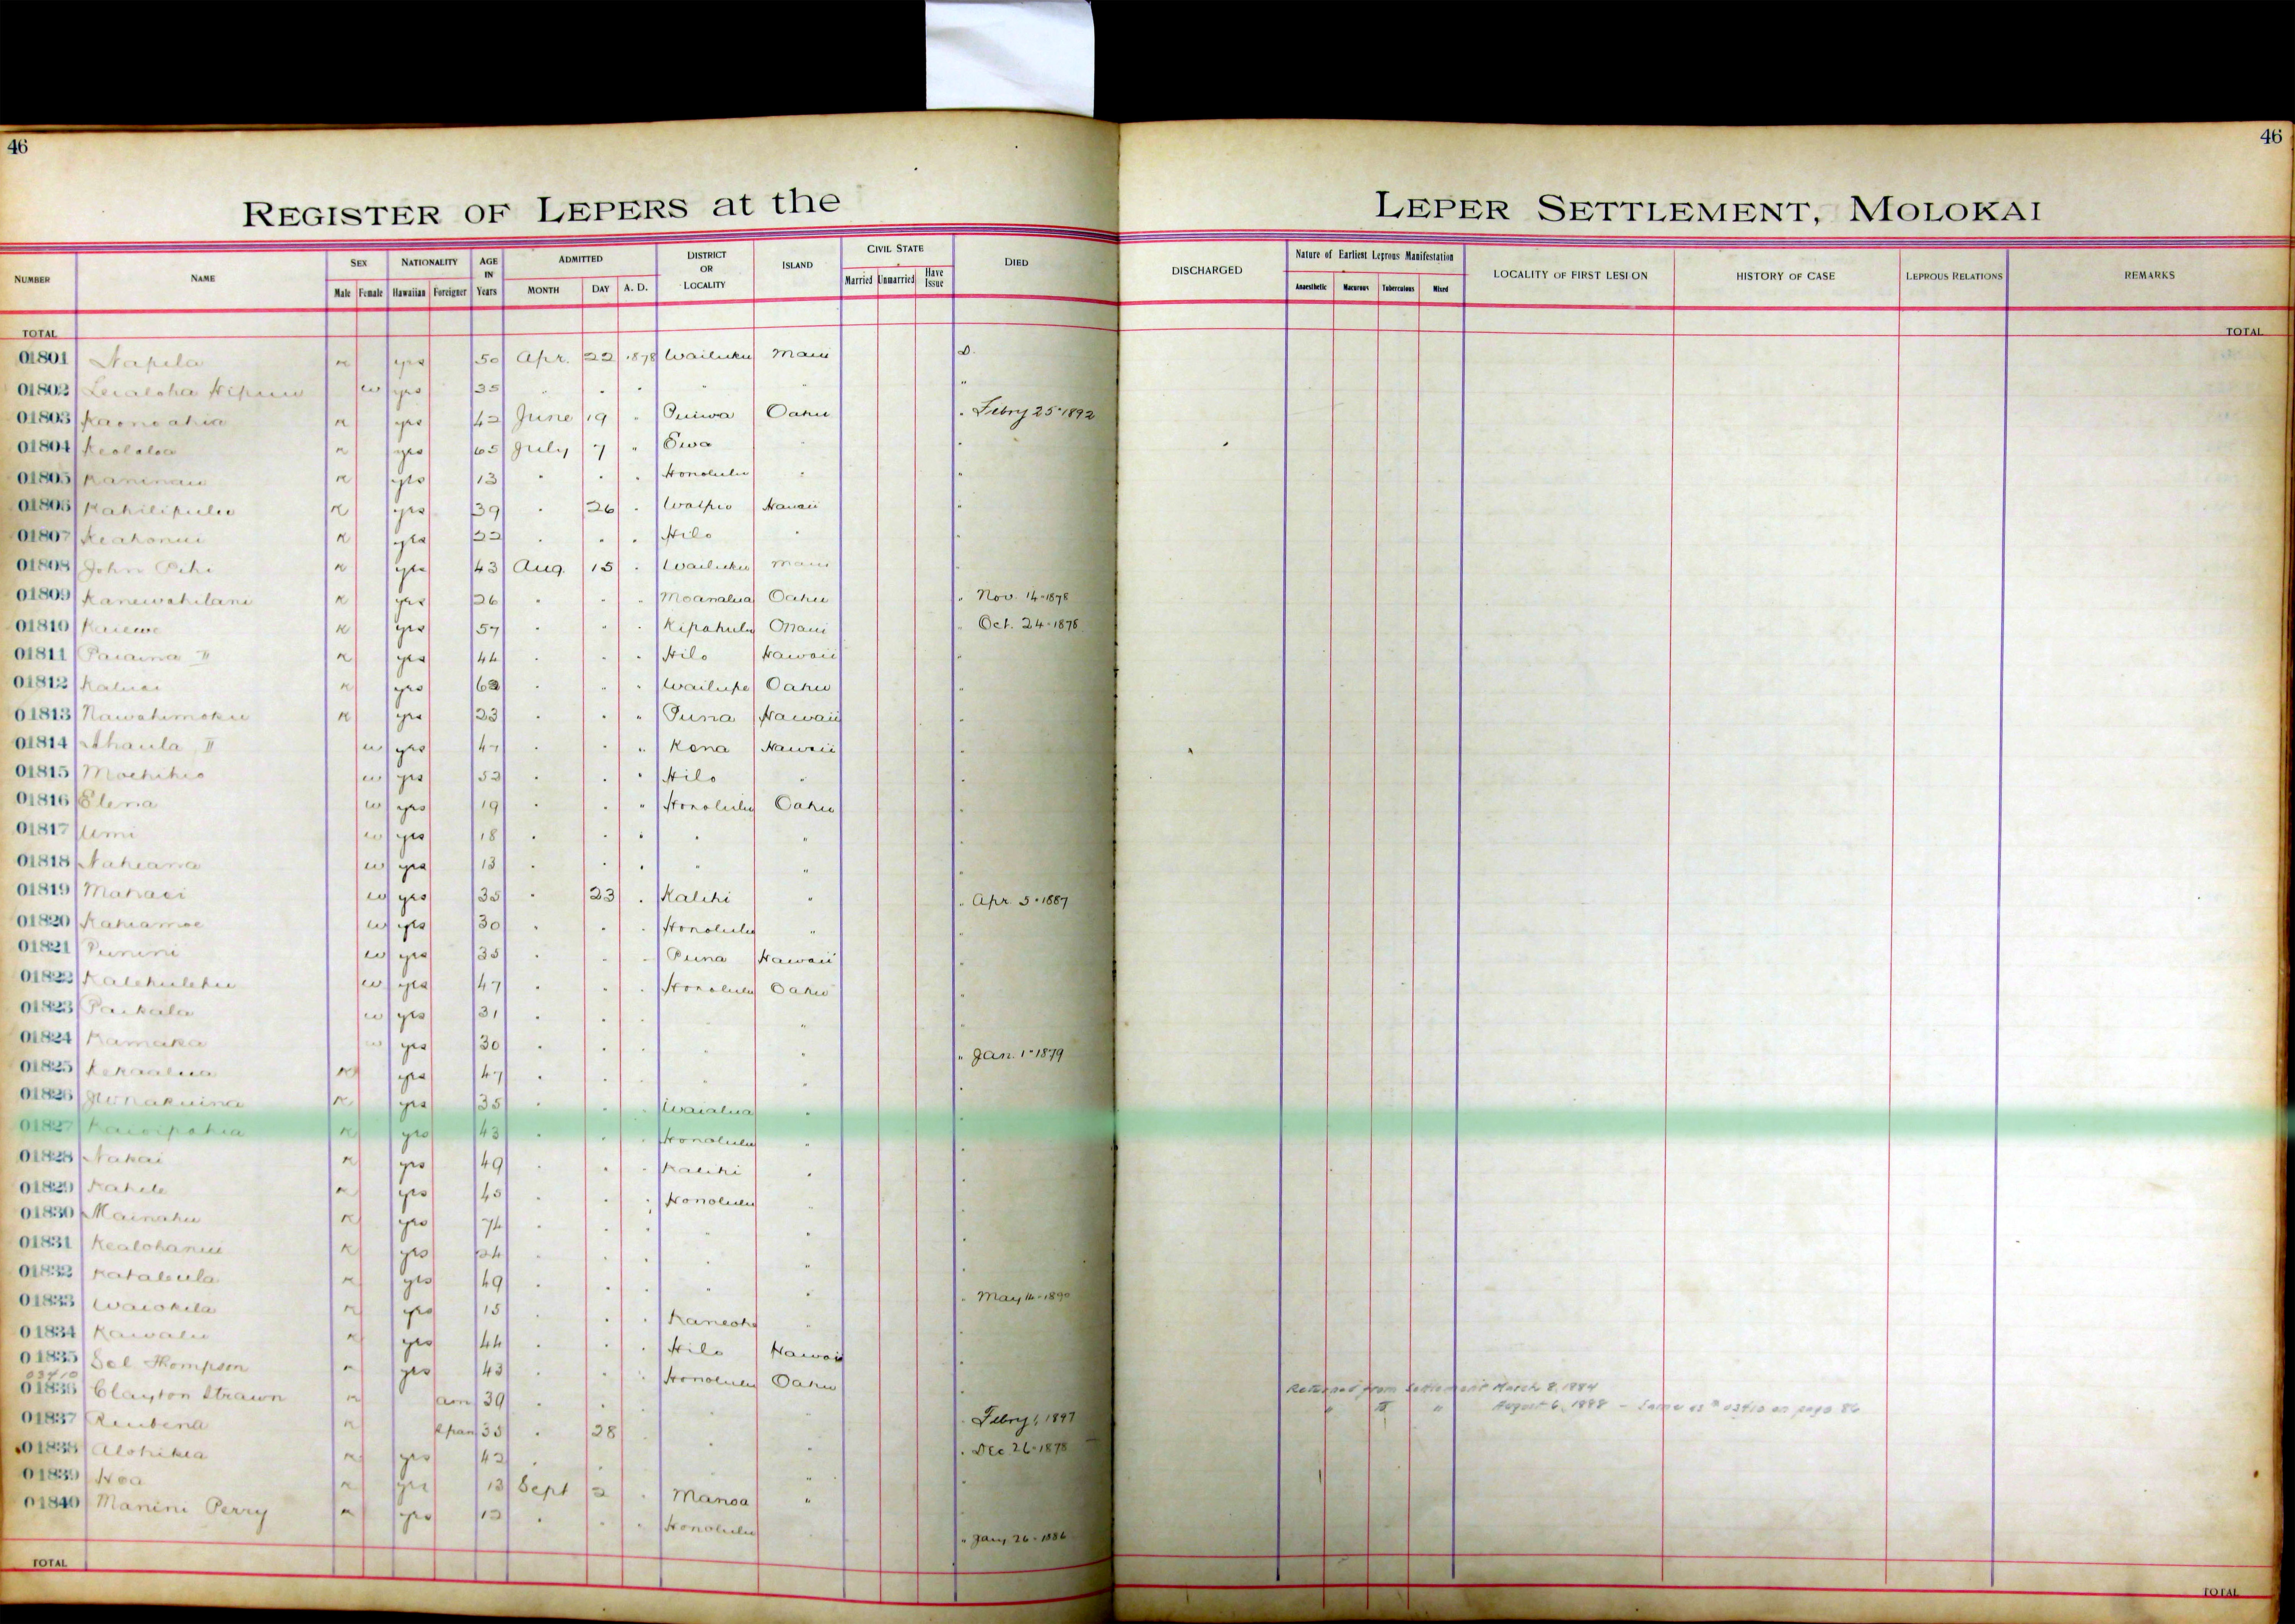 46
46
REGISTER OF LEPERS at the LEPER SETTLEMENT, MOLOKAI
NUMBER NAME SEX Male Female NATIONALITY Hawaiian Foreigner AGE IN Years ADMITTED MONTH DAY A. D. DISTRICT OR LOCALITY ISLAND CIVIL STATE Married Unmarried Have Issue DIED DISCHARGED Nature of Earliest Leprous Manifestation Anaesthetic Macurous Tuberculous Mixed LOCALITY OF FIRST LESION HISTORY OF CASE LEPROUS RELATIONS REMARKS
TOTAL TOTAL
01801 Napela yes 50 Apr. 22 1878 Wailuku Maui D.
01802 Lealoha w yes 35 " " " " " "
01803 Kaonoahia yes 42 June 19 " Puiwa Oahu " Febry 25-1892
01804 Keololoa yes 65 July 7 " Ewa " "
01805 Kaninau yes 13 " " " Honolulu " "
01806 Kahilipulu yes 39 " 26 " Waipio Hawaii "
01807 Keahonui yes 22 " " " Hilo " "
01808 John yes 43 Aug. 15 " Wailuku Maui "
01809 Kanewahilani yes 26 " " " Moanalua Oahu " Nov. 14-1878
01810 yes 57 " " " Kipahulu Maui " Oct. 24-1878
01811 Paiaina II yes 44 " " " Hilo Hawaii "
01812 Kaluai yes " " " Wailupe Oahu "
01813 Nawahimoku yes 23 " " " Puna Hawaii "
01814 Ahaula II w yes 47 " " " Kona Hawaii "
01815 w yes 52 " " " Hilo " "
01816 Elena w yes 19 " " " Honolulu Oahu "
01817 Umi w yes 18 " " " " " "
01818 w yes 13 " " " " " "
01819 w yes 35 " 23 " Kalihi " " Apr. 5-1887
01820 w yes 30 " " " Honolulu " "
01821 Punini w yes 35 " " " Puna Hawaii "
01822 Kalehulehu w yes 47 " " " Honolulu Oahu "
01823 Paikala w yes 31 " " " " " "
01824 Kamaka w yes 30 " " " " " " Jan. 1-1879
01825 Kekaalua yes 47 " " " " " "
01826 yes 35 " " " Waialua " "
01827 yes 43 " " " Honolulu " "
01828 Nakai yes 49 " " " Kalihi " "
01829 Kahele yes 45 " " " Honolulu " "
01830 Mainahu yes 74 " " " " " "
01831 Kealohanui yes 24 " " " " " "
01832 yes 49 " " " " " " May 14-1890
01833 Waiokila yes 15 " " " Kaneohe " "
01834 Kawalu yes 44 " " " Hilo Hawaii "
01835 Sol Thompson yes 43 " " " Honolulu Oahu "
03410
01836 Clayton Strawn am 39 " " " " " " Febry 1, 1897 Returned from Settlement March 8, 1884
" " " August 6, 1888 - Same as # 03410 on page 86
01837 Reubena Span 35 " 28 " " " " Dec 26-1878
01838 Alohikea yes 42 " " " " " "
01839 Hoa yes 13 Sept 2 " Manoa " "
01840 Manini Perry yes 12 " " " Honolulu " Jany 26-1886
TOTAL TOTAL